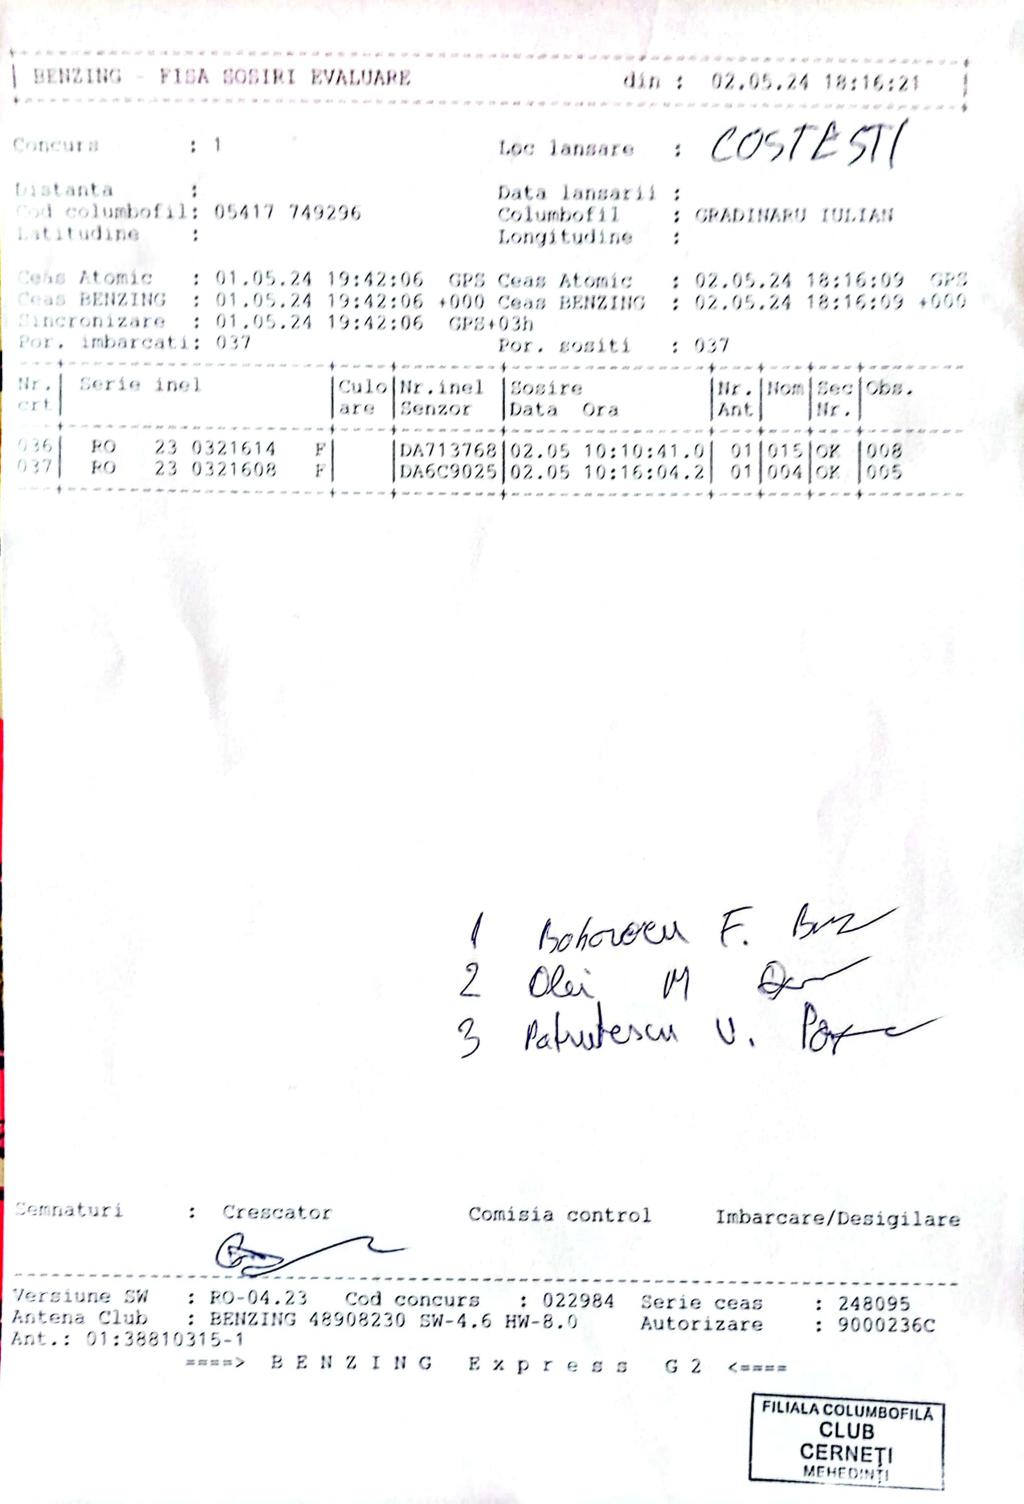 BENZING - FISA SOSIRI EVALUARE din : 02.05.24 18:16:21
Concurs : 1 Loc lansare : COSTESTI
Distanta : Data lansarii :
Cod columbofil: 05417 749296 Columbofil : GRADINARU IULIAN
Latitudine : Longitudine :
Ceas Atomic : 01.05.24 19:42:06 GPS Ceas Atomic : 02.05.24 18:16:09 GPS
Ceas BENZING : 01.05.24 19:42:06 +000 Ceas BENZING : 02.05.24 18:16:09 +000
Sincronizare : 01.05.24 19:42:06 GPS+03h
Por. imbarcati: 037 Por. sositi : 037
Nr. Serie inel Culo Nr.inel Sosire Nr. Nom Sec Obs.
crt are Senzor Data Ora Ant Nr.
036 RO 23 0321614 F DA713768 02.05 10:10:41.0 01 015 OK 008
037 RO 23 0321608 F DA6C9025 02.05 10:16:04.2 01 004 OK 005
1 F.
2 Olei M
3 Patrutescu V.
Semnaturi : Crescator Comisia control Imbarcare/Desigilare
Versiune SW : RO-04.23 Cod concurs : 022984 Serie ceas : 248095
Antena Club : BENZING 48908230 SW-4.6 HW-8.0 Autorizare : 9000236C
Ant.: 01:38810315-1
====> B E N Z I N G E x p r e s s G 2 <====
FILIALA COLUMBOFILĂ
CLUB
CERNEȚI
MEHEDINȚI